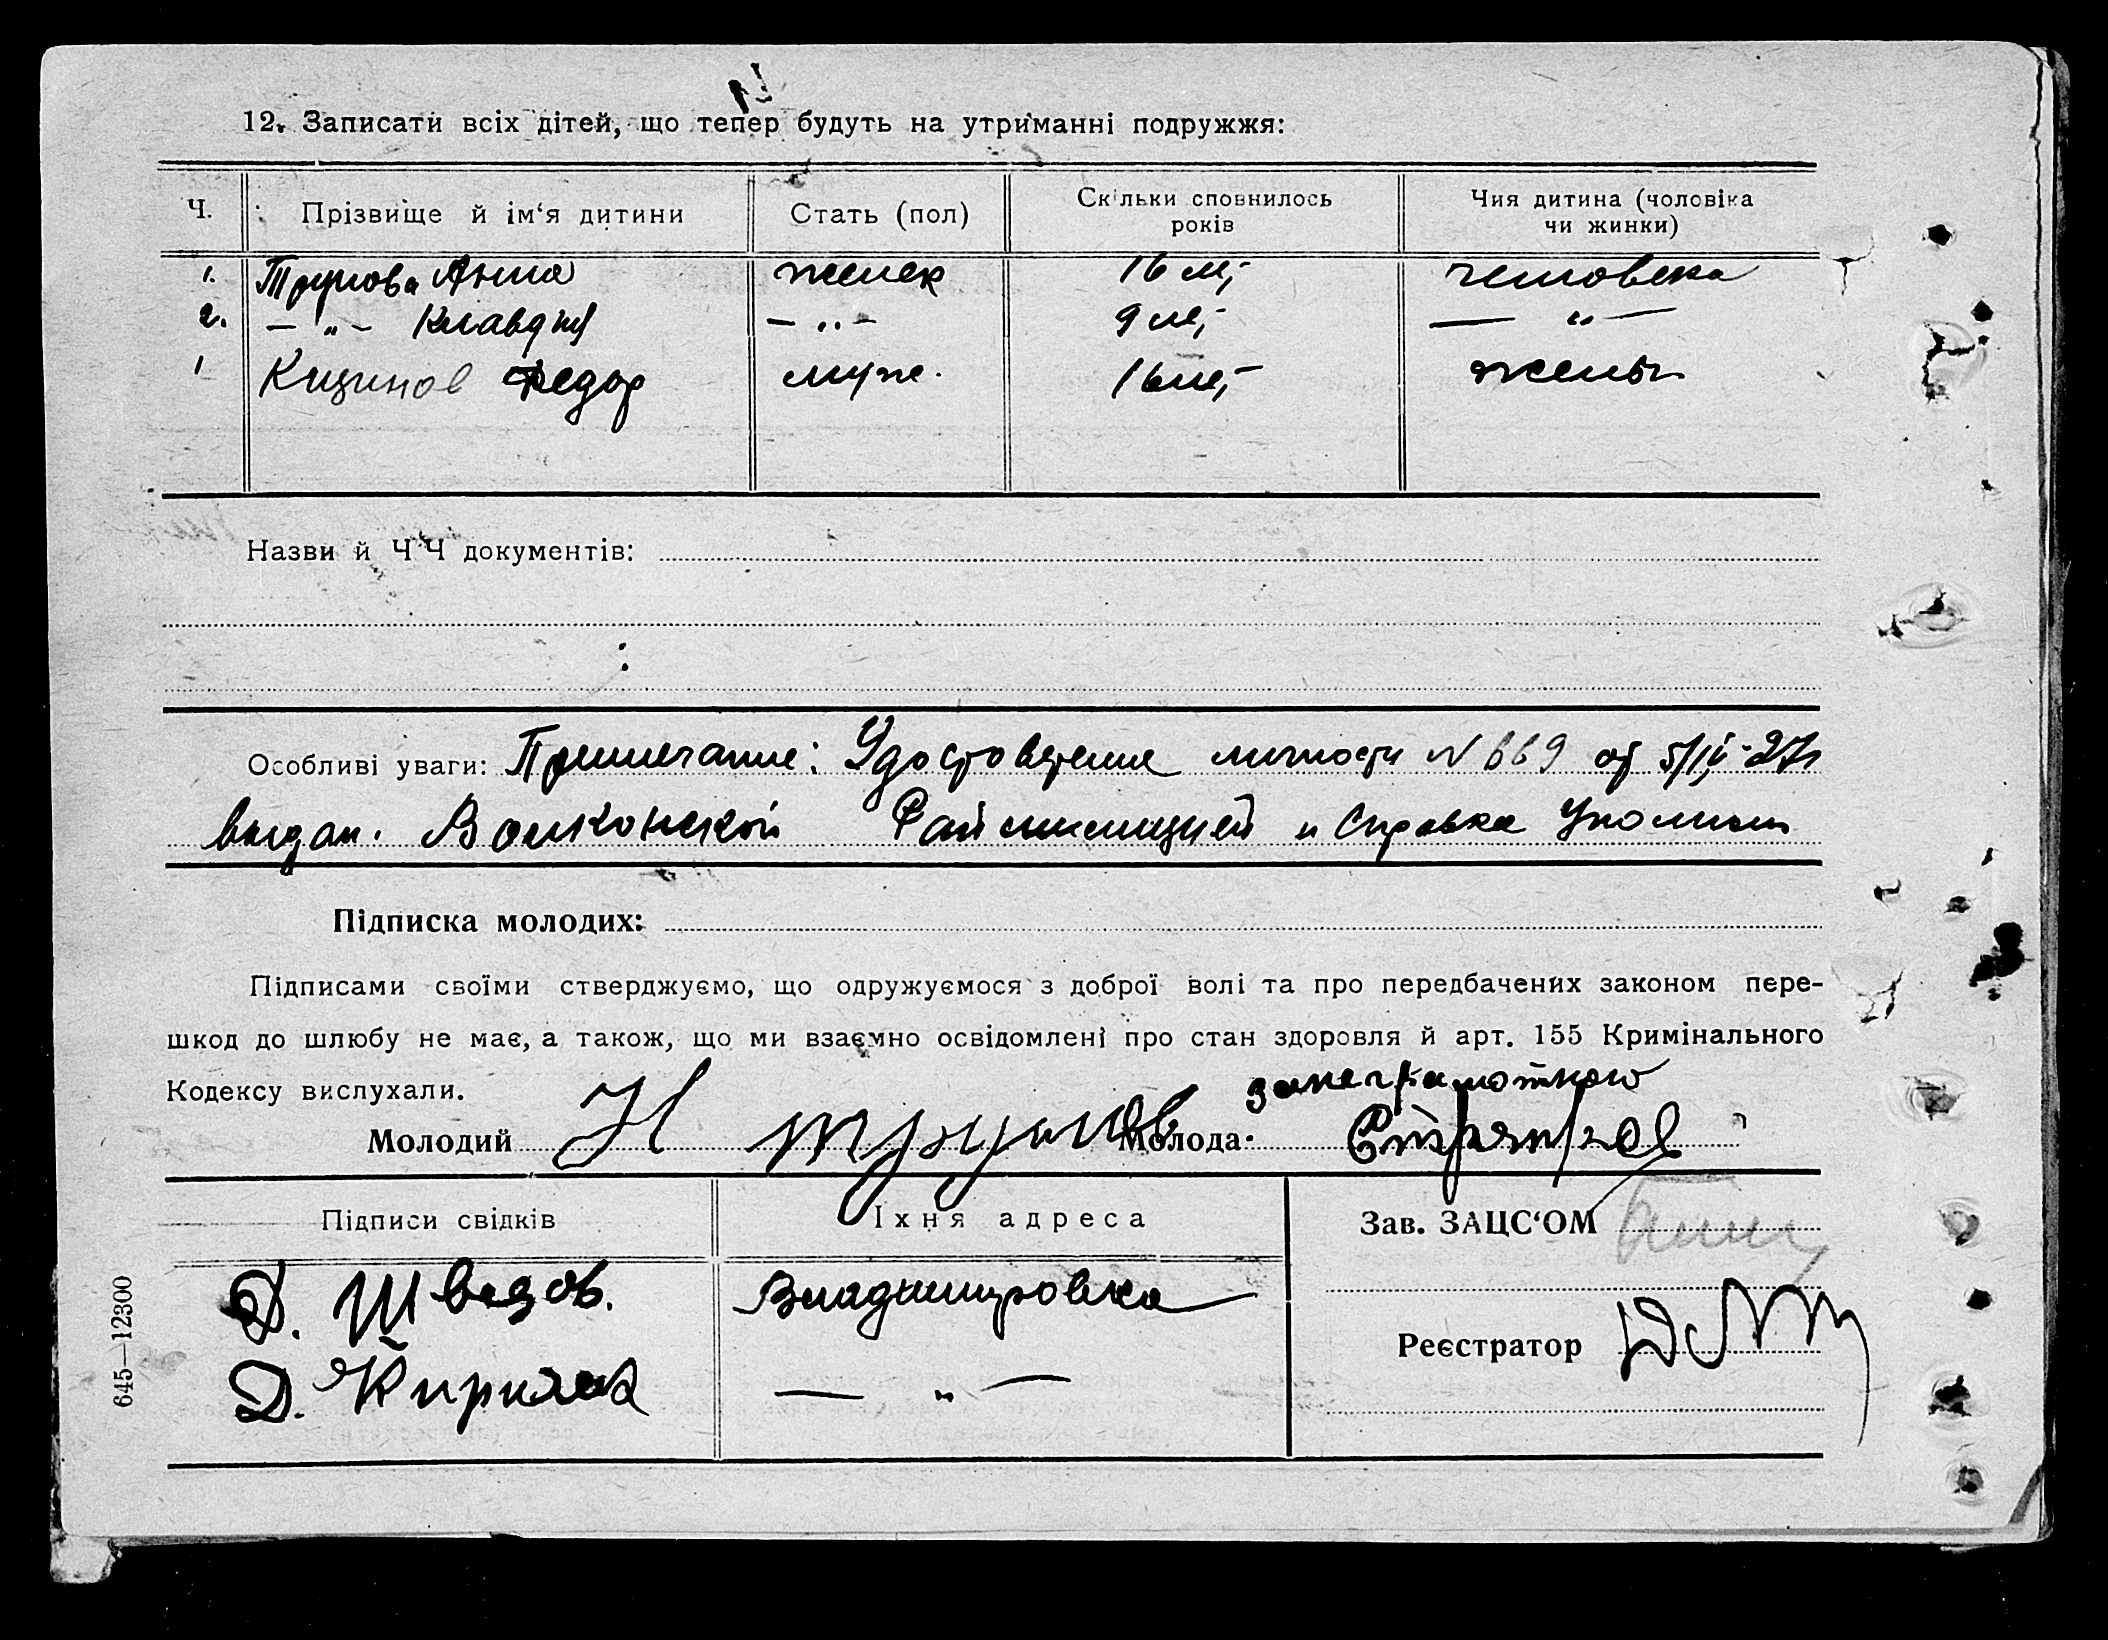 12. Записати всіх дітей, що тепер будуть на утриманні подружжя:
Ч. Прізвище й ім‘я дитини Стать (пол) Скільки сповнилось років Чия дитина (чоловіка чи жинки)
1. Трунова Анна женск 16 л,- человека
2. — „ — Клавдия — „ — 9 л,- — „ —
1 Кизинов Федор муж. 16 л,- жены
Назви й Ч Ч документів:
Особливі уваги: Примечание: Удостоверение личности N 669 от 5/IV-27г
выдан. Волконской Раймилицией и Справка
Підписка молодих:
Підписами своїми стверджуємо, що одружуємося з доброї волі та про передбачених законом пере-
шкод до шлюбу не має, а також, що ми взаємно освідомлені про стан здоровля й арт. 155 Кримінального
Кодексу вислухали.
за неграмотною
Молодий Н Трунов Молода:
Підписи свідків Їхня адреса Зав. ЗАЦС‘ОМ
Д. Шведов. Владимировка
Реєстратор
Д. — „ —
645—12300